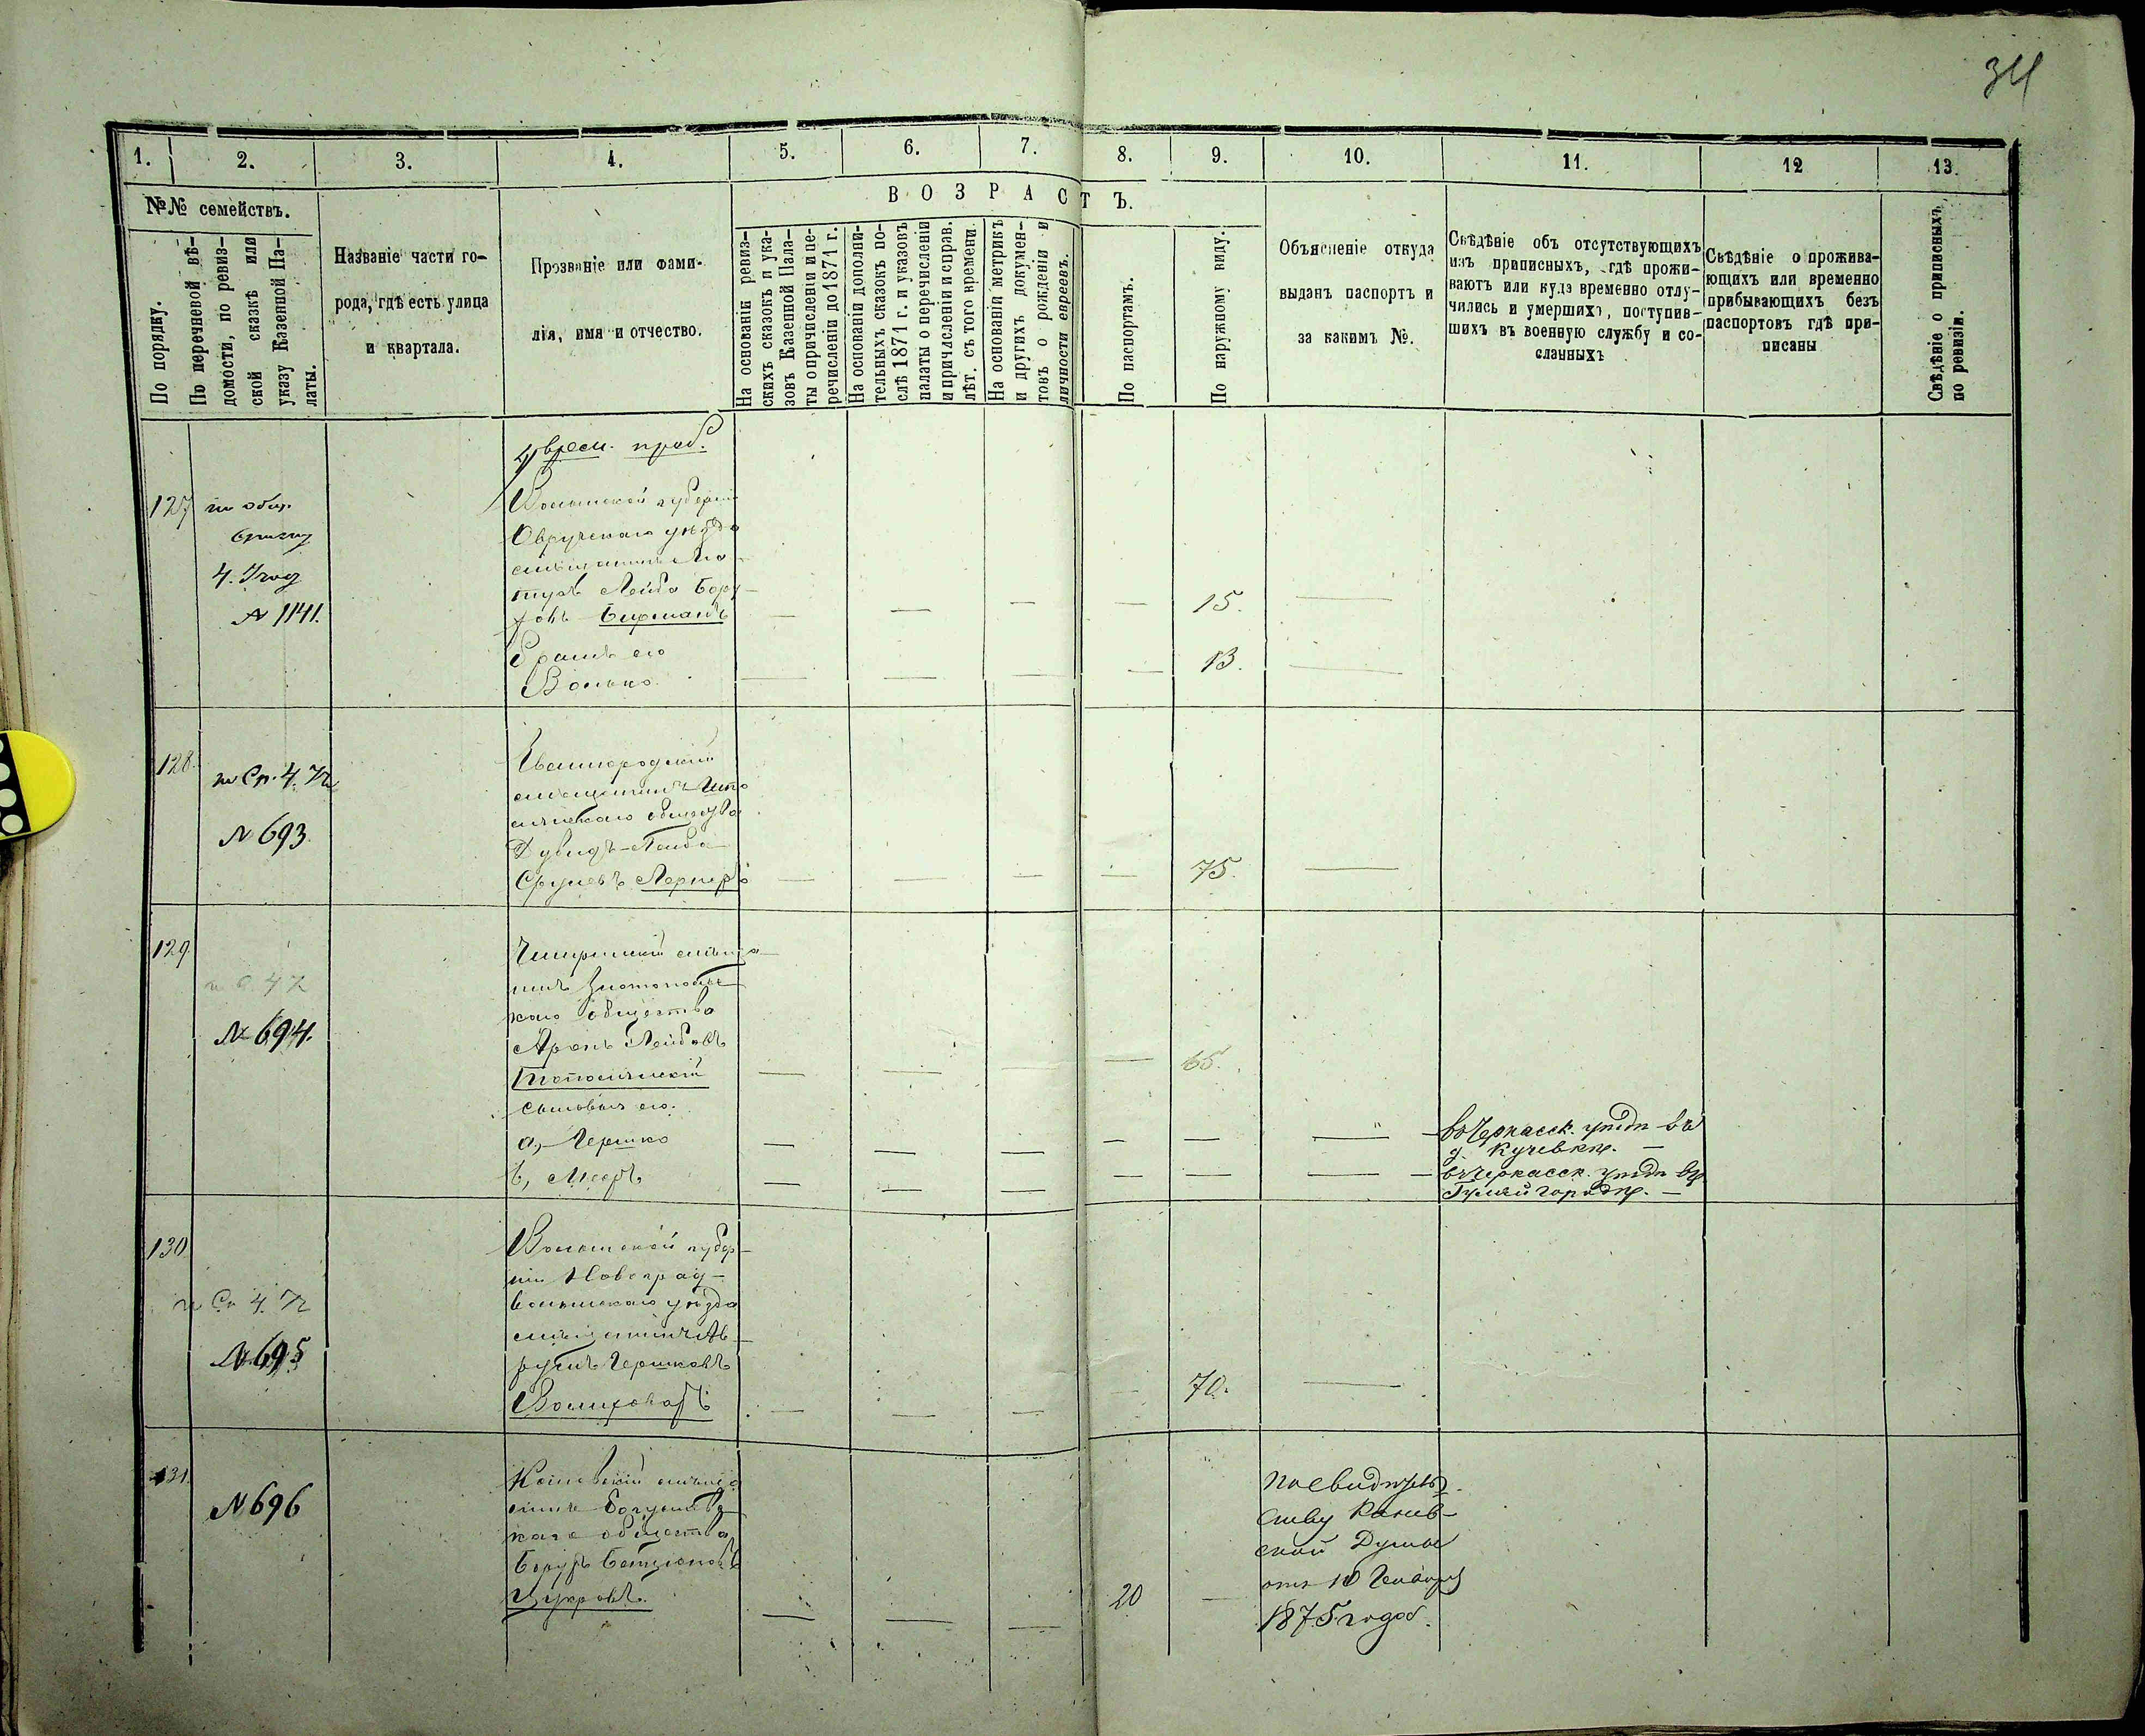 34
1. 2. 3. 4. 5. 6. 7. 8. 9. 10. 11. 12 13.
№№ семействъ.
По порядку.
По перечневой вѣ-
домости, по ревиз-
ской сказкѣ или
указу Казенной Па-
латы.
Названіе части го-
рода, гдѣ есть улица
и квартала.
Прозваніе или фами-
лія, имя и отчество.
ВОЗРАСТЪ.
На основаніи ревиз-
скихъ сказокъ и ука-
зовъ Казенной Пала-
ты о причисленіи и пе-
речисленіи до 1871 г.
На основаніи дополни-
тельныхъ сказокъ по-
слѣ 1871 г. и указовъ
палаты о перечисленіи
и причисленіи и справ.
лѣт. съ того времени.
На основаніи метрикъ
и другихъ докумен-
товъ о рожденіи и
личности евреевъ.
По паспортамъ.
По наружному виду.
Объясненіе откуда
выданъ паспортъ и
за какимъ №.
Свѣдѣніе объ отсутствующихъ
изъ приписныхъ, гдѣ прожи-
ваютъ или куда временно отлу-
чились и умершихъ, поступив-
шихъ въ военную службу и со-
сланныхъ
Свѣдѣніе о прожива-
ющихъ или временно
прибывающихъ безъ
паспортовъ гдѣ при-
писаны
Свѣдѣніе о приписныхъ
по ревизіи.
врем. приб.
127
№ 1141.
Волынской губерніи
Овручскаго уѣзда
мѣщанинъ Мо-
Лейба Бору-
ховъ Бирманъ
15.
братъ его
Волько.
13.
128.
№ 693.
Звенигородскій
мѣщанинъ
общества
Дувидъ-Лейба
Срулевъ Лернеръ
75.
129.
№ 694.
Чигиринскій мѣща-
нинъ Златопольс-
каго общества
Аронъ Лейбовъ
65.
сыновья его.
а, Гершко
въ Черкасск. уѣздѣ въ
д.
б, Мееръ
въ Черкасск. уѣздѣ въ
Гуляйгородкѣ.
130
№ 695
Волынской губер-
ніи Новоград-
волынскаго уѣзда
мѣщанинъ Ав-
румъ Гершковъ
70.
131.
№ 696
Каневскій мѣща-
нинъ Богуславс-
каго общества
Борухъ Бенціоновъ
Цукровъ.
20
по свидѣтель-
ству Канев-
ской Думы
отъ 10 Января
1875 года.